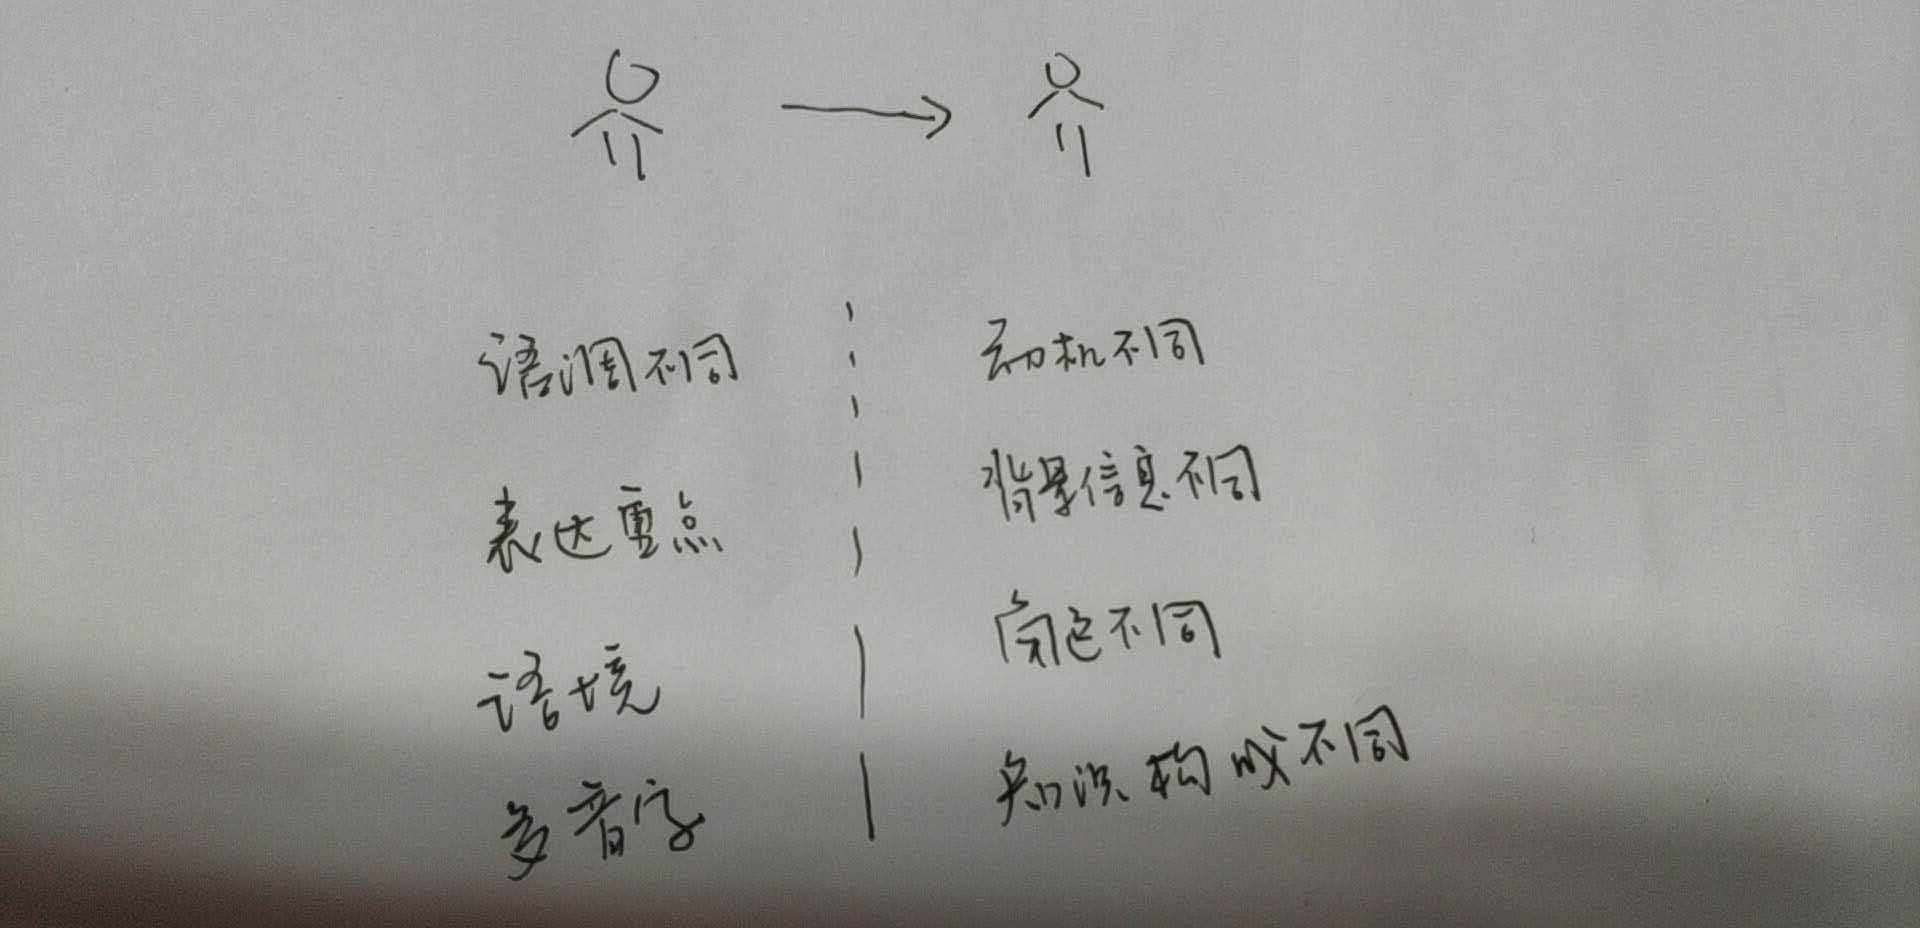 语调不同
表达重点
语境
多音字
动机不同
背景信息不同
角色不同
知识构成不同